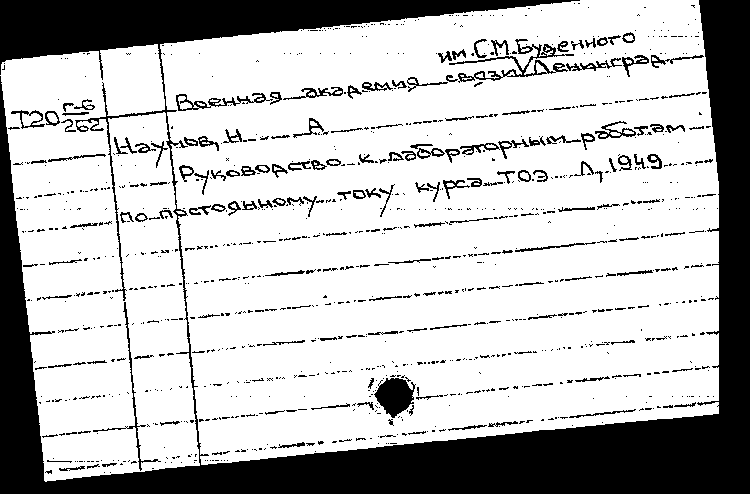 им. С.М. Буденного
Военная академия связи V Ленинград.
Т20 г-6
262
Наумов, Н А
Руководство к лабораторным работам
по постоянному току курса ТОЭ Л, 1949